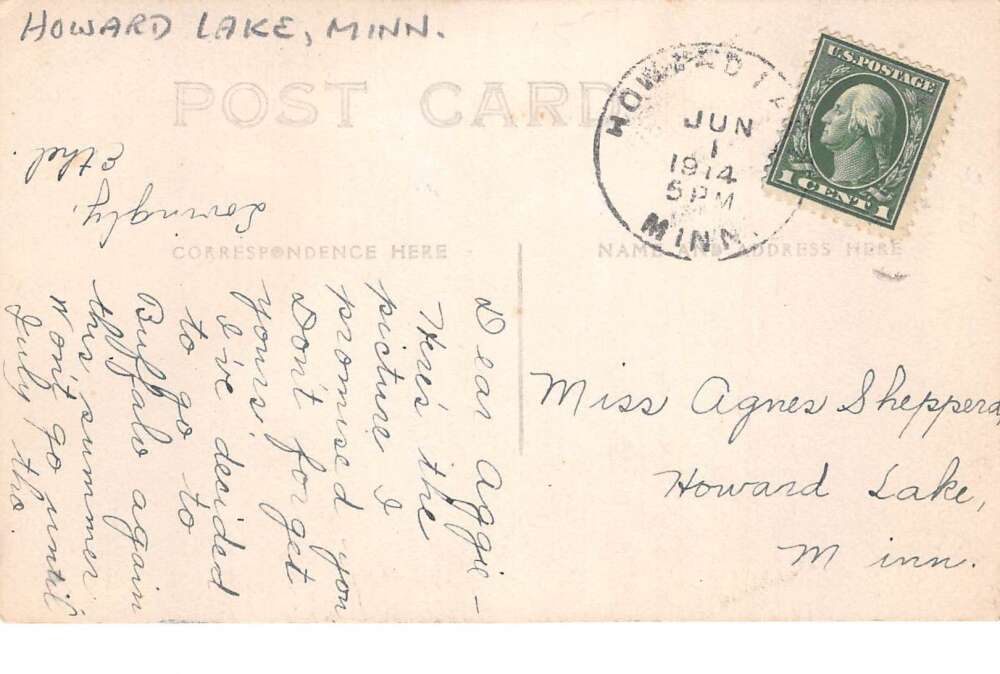 HOWARD LAKE, MINN.
POST CARD
HOWARD
JUN
1
1914
5 PM
MINN.
U.S. POSTAGE
1 CENT 1
CORRESPONDENCE HERE
NAME AND ADDRESS HERE
Dear Aggie -
Here's the
picture I
promised you
Don't forget
yours!
I've decided
to go to
Buffalo again
this summer
Won't go until
July tho.
Lovingly,
Ethel.
Miss Agnes Shepperd,
Howard Lake,
Minn.